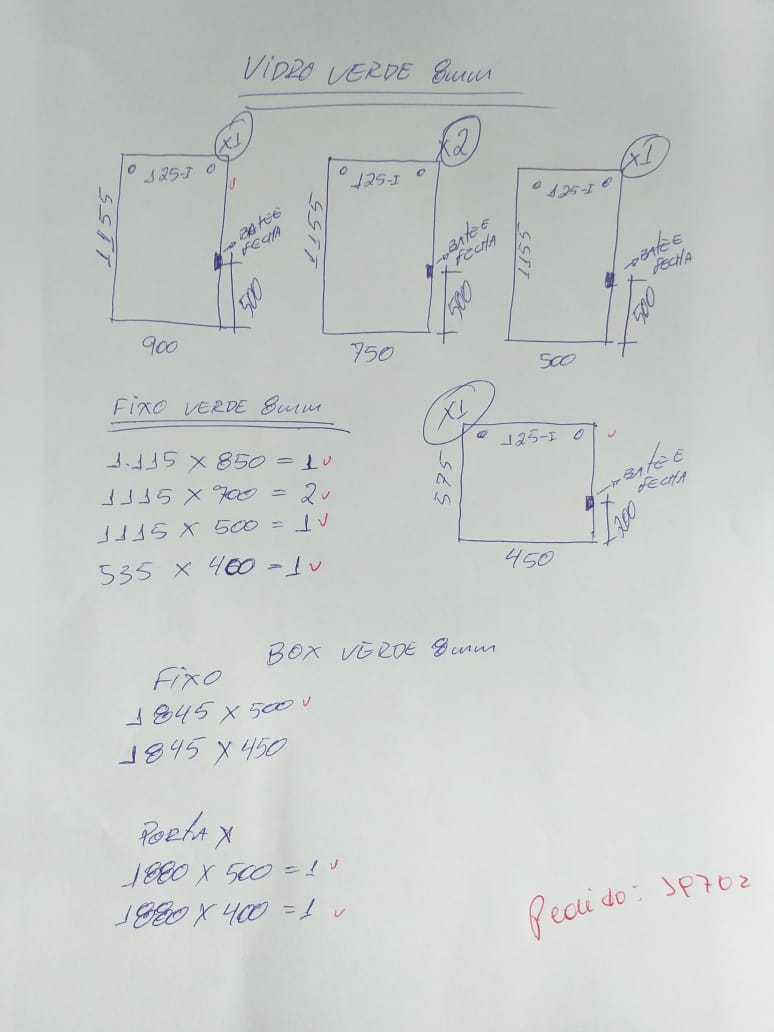 VIDRO VERDE 8mm
X1
X2
X1
125-I
125-I
125-I
1155
1155
1155
BATE E
FECHA
BATE E
FECHA
BATE E
FECHA
500
500
500
900
750
500
FIXO VERDE 8mm
1.115 X 850 = 1
1115 X 700 = 2
1115 X 500 = 1
535 X 400 = 1
X1
125-I
575
BATE E
FECHA
200
450
BOX VERDE 8mm
FIXO
1845 X 500
1845 X 450
PORTA X
1880 X 500 = 1
1880 X 400 = 1
Pedido: